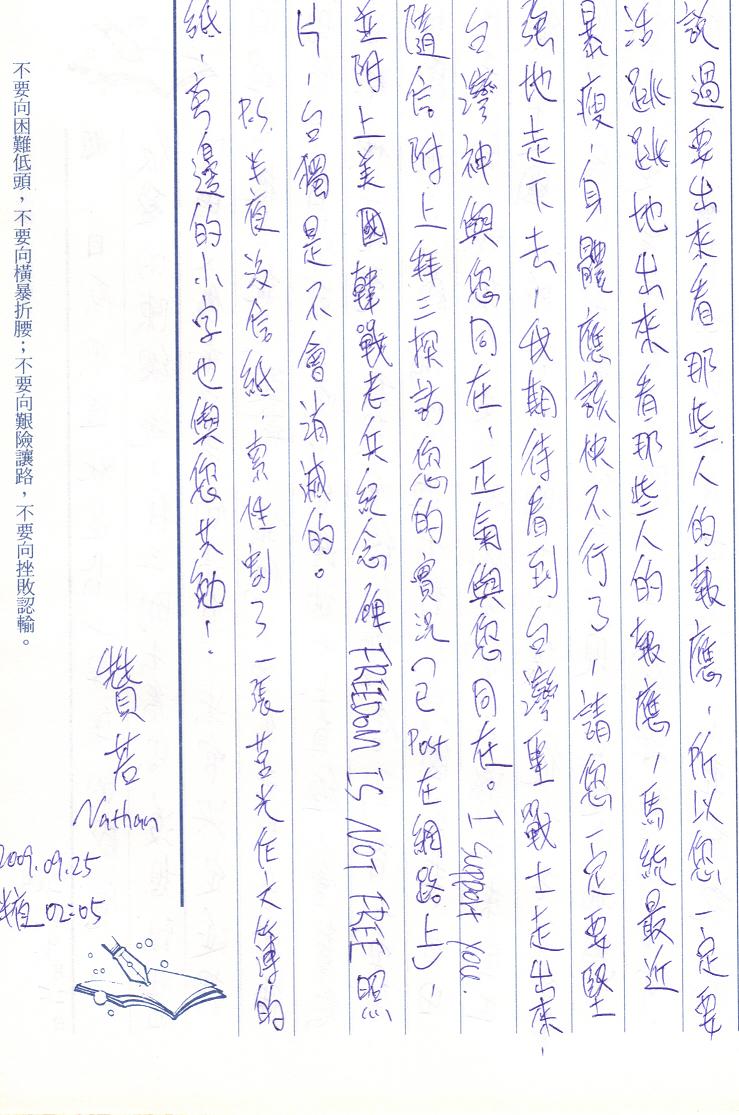 說過要出來看那些人的報應，所以您一定要
活跳跳地出來看那些人的報應，馬統最近
暴瘦，身體應該快不行了，請您一定要堅
強地走下去，我期待看到台灣聖戰士走出來，
台灣神與您同在，正氣與您同在。I support you.
隨信附上拜三探訪您的實況（已Post在網路上），
並附上美國韓戰老兵紀念碑FREEDOM IS NOT FREE照
片，台獨是不會消滅的。
P.S. 半夜沒信紙，索性割了一張莒光作文簿的
紙，旁邊的小字也與您共勉！
贊若
Nathan
2009.09.25
02:05
不要向困難低頭，不要向橫暴折腰；不要向艱險讓路，不要向挫敗認輸。